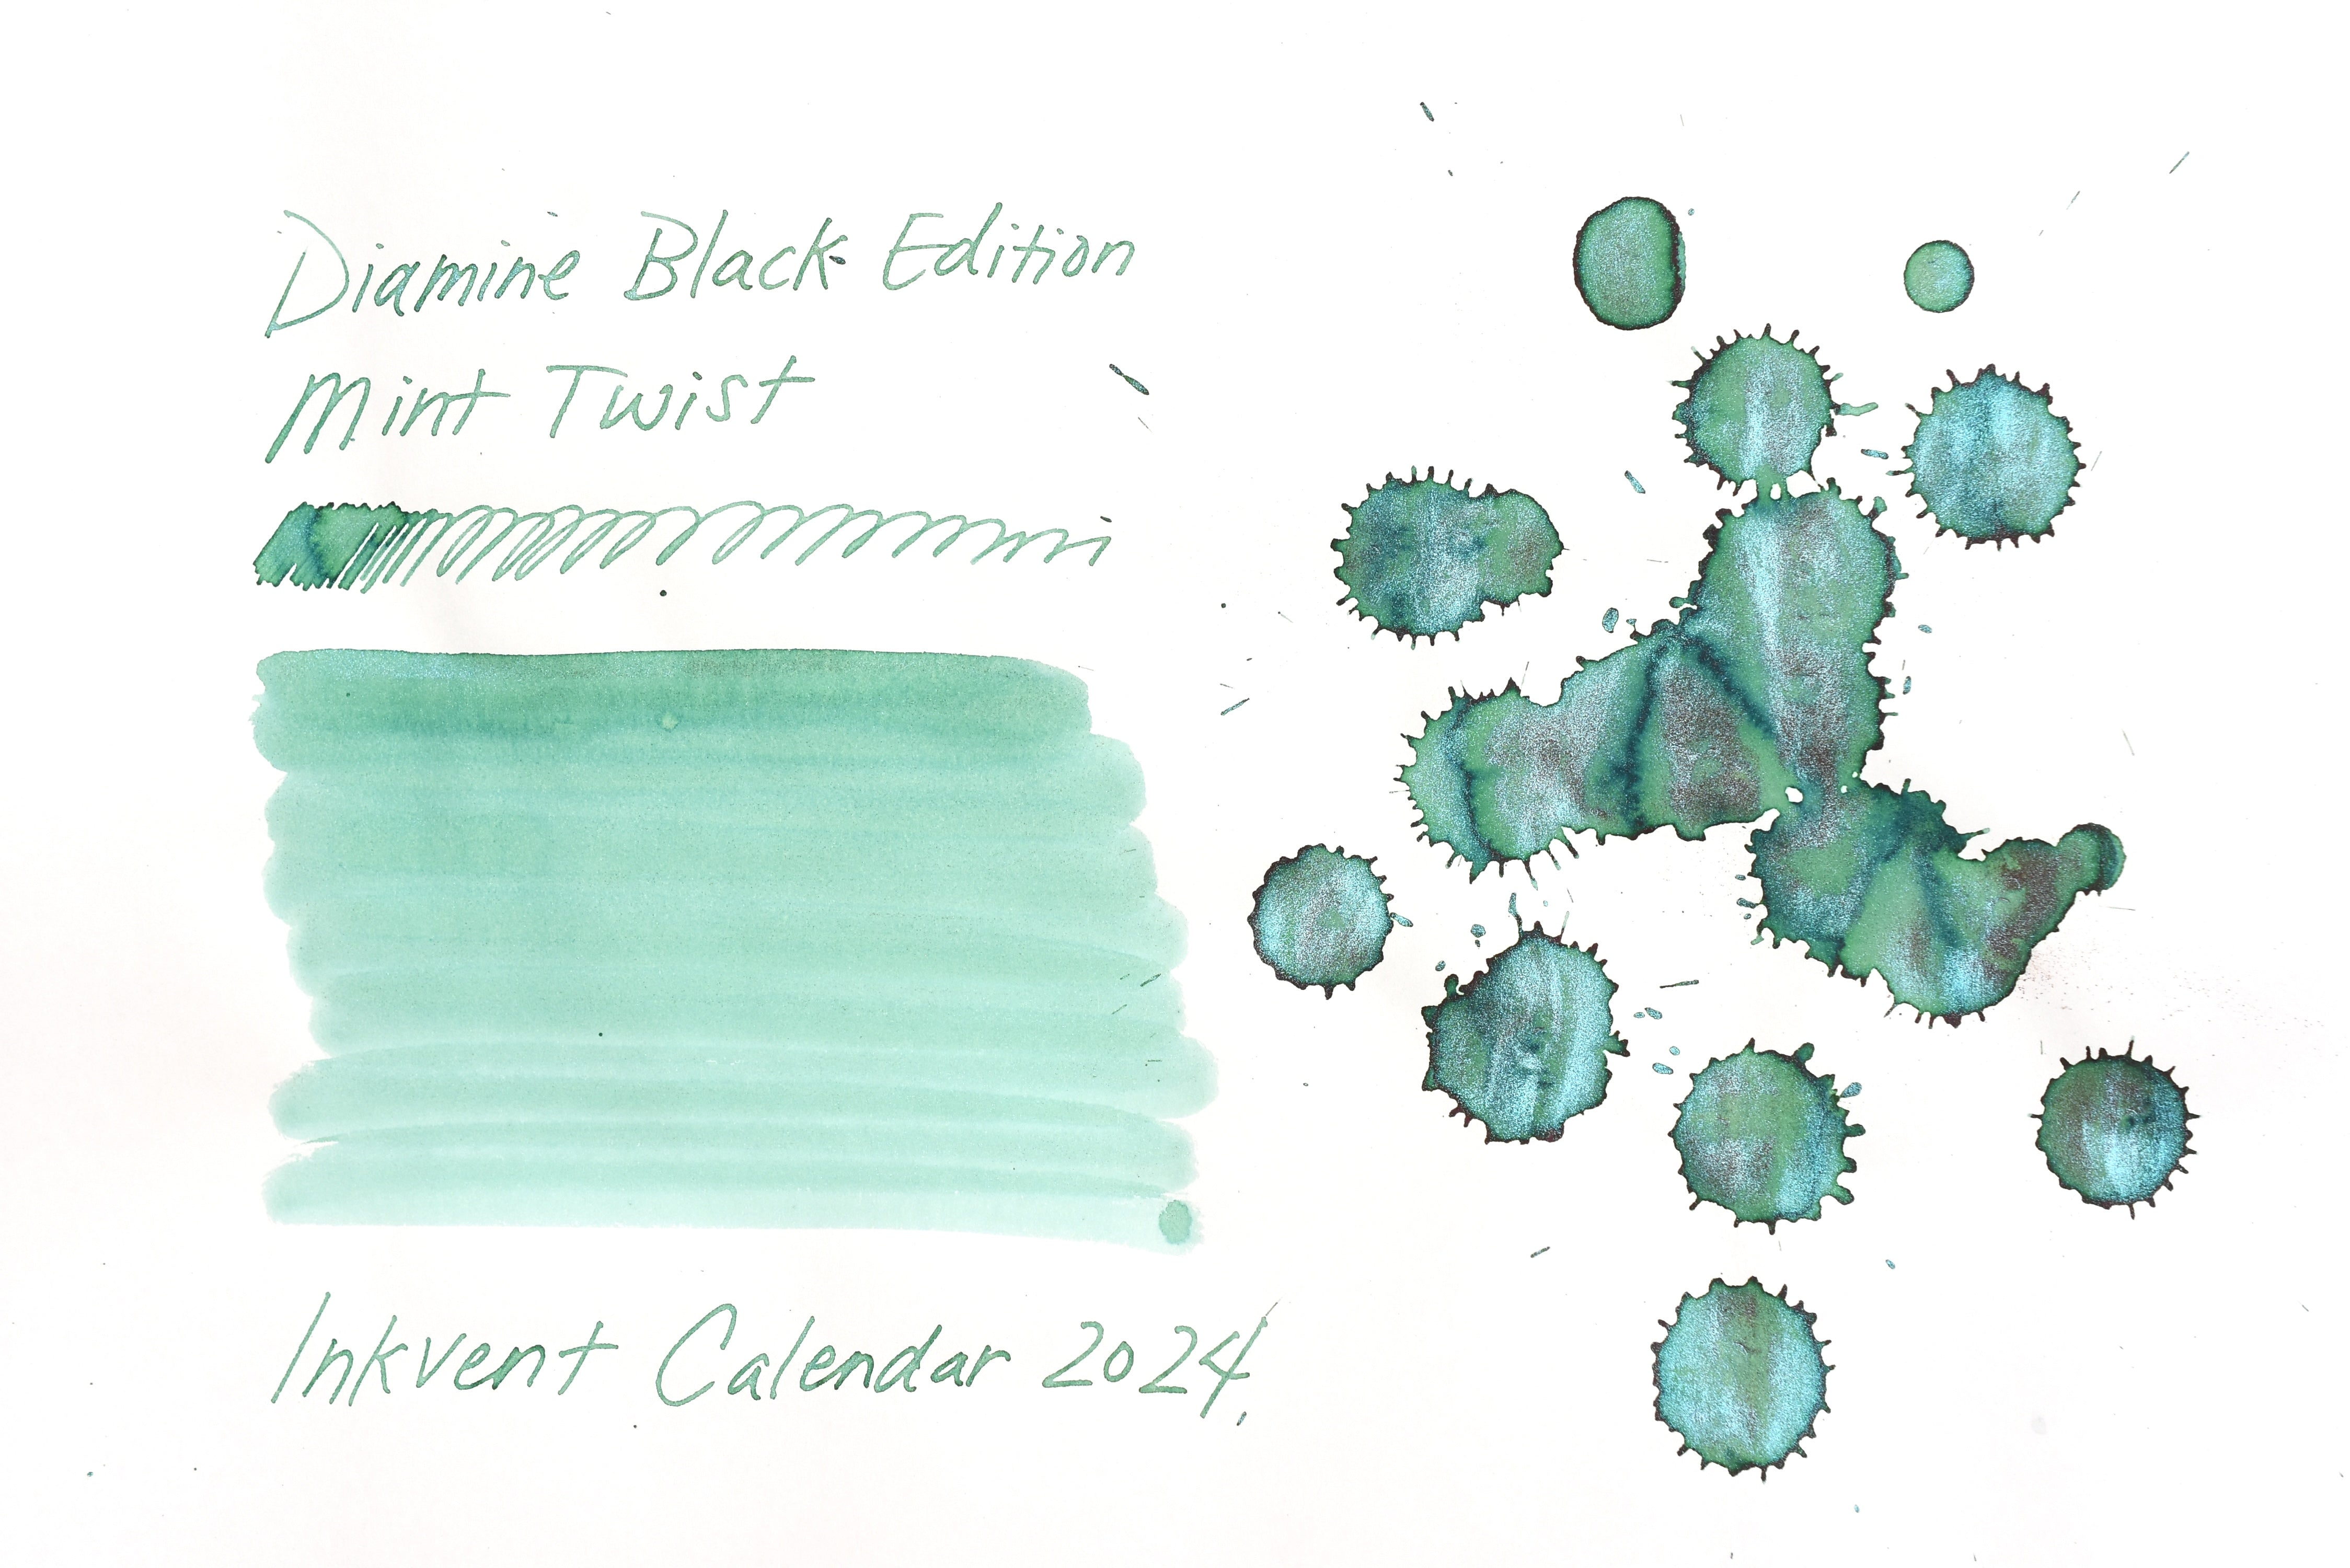 Diamine Black Edition
Mint Twist
Inkvent Calendar 2024